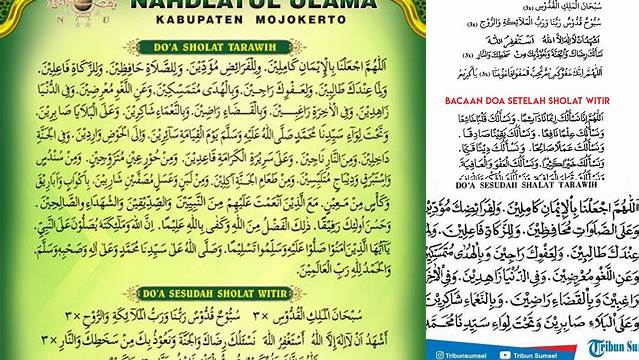 NAHDLATUL ULAMA
KABUPATEN MOJOKERTO
DO'A SHOLAT TARAWIH
اَللّٰهُمَّ اجْعَلْنَا بِالْإِيْمَانِ كَامِلِيْنَ. وَلِلْفَرَائِضِ مُؤَدِّيْنَ. وَلِلصَّلَاةِ حَافِظِيْنَ. وَلِلزَّكَاةِ فَاعِلِيْنَ.
وَلِمَا عِنْدَكَ طَالِبِيْنَ. وَلِعَفْوِكَ رَاجِيْنَ. وَبِالْهُدَى مُتَمَسِّكِيْنَ. وَعَنِ اللَّغْوِ مُعْرِضِيْنَ. وَفِى الدُّنْيَا
زَاهِدِيْنَ. وَفِى الْآخِرَةِ رَاغِبِيْنَ. وَبِالْقَضَاءِ رَاضِيْنَ. وَبِالنَّعْمَاءِ شَاكِرِيْنَ. وَعَلَى الْبَلَايَا صَابِرِيْنَ.
وَتَحْتَ لِوَاءِ سَيِّدِنَا مُحَمَّدٍ صَلَّى اللهُ عَلَيْهِ وَسَلَّمَ يَوْمَ الْقِيَامَةِ سَائِرِيْنَ. وَإِلَى الْحَوْضِ وَارِدِيْنَ. وَفِى الْجَنَّةِ
دَاخِلِيْنَ. وَمِنَ النَّارِ نَاجِيْنَ. وَعَلَى سَرِيْرَةِ الْكَرَامَةِ قَاعِدِيْنَ. وَمِنْ حُوْرٍ عِيْنٍ مُتَزَوِّجِيْنَ. وَمِنْ سُنْدُسٍ
وَاِسْتَبْرَقٍ وَدِيْبَاجٍ مُتَلَبِّسِيْنَ. وَمِنْ طَعَامِ الْجَنَّةِ آكِلِيْنَ. وَمِنْ لَبَنٍ وَعَسَلٍ مُصَفًّيْنَ شَارِبِيْنَ. بِأَكْوَابٍ وَأَبَارِيْقَ
وَكَأْسٍ مِنْ مَعِيْنٍ. مَعَ الَّذِيْنَ أَنْعَمْتَ عَلَيْهِمْ مِنَ النَّبِيِّيْنَ وَالصِّدِّيْقِيْنَ وَالشُّهَدَاءِ وَالصَّالِحِيْنَ
وَحَسُنَ أُولٰئِكَ رَفِيْقًا. ذٰلِكَ الْفَضْلُ مِنَ اللهِ وَكَفَى بِاللهِ عَلِيْمًا. اِنَّ اللهَ وَمَلٰٓئِكَتَهُ يُصَلُّوْنَ عَلَى النَّبِيِّ.
يَآاَيُّهَا الَّذِيْنَ آمَنُوْا صَلُّوْا عَلَيْهِ وَسَلِّمُوْا تَسْلِيْمًا. وَصَلَّى اللهُ عَلَى سَيِّدِنَا مُحَمَّدٍ وَعَلَى آلِهِ وَصَحْبِهِ وَسَلَّمَ.
وَالْحَمْدُ لِلّٰهِ رَبِّ الْعَالَمِيْنَ.
DO'A SESUDAH SHOLAT WITIR
سُبْحَانَ الْمَلِكِ الْقُدُّوْسِ ×٣ سُبُّوْحٌ قُدُّوْسٌ رَبُّنَا وَرَبُّ الْمَلَائِكَةِ وَالرُّوْحِ ×٣
أَشْهَدُ أَنْ لَا إِلٰهَ إِلَّا اللهُ أَسْتَغْفِرُ اللهَ نَسْئَلُكَ رِضَاكَ وَالْجَنَّةَ وَنَعُوْذُ بِكَ مِنْ سَخَطِكَ وَالنَّارِ ×٣
سُبْحَانَ الْمَلِكِ الْقُدُّوْسِ (3x)
سُبُّوْحٌ قُدُّوْسٌ رَبُّنَا وَرَبُّ الْمَلَائِكَةِ وَالرُّوْحِ (3x)
أَشْهَدُ أَنْ لَا إِلٰهَ إِلَّا اللهُ أَسْتَغْفِرُ اللهَ
(3x)
BACAAN DOA SETELAH SHOLAT WITIR
DO'A SESUDAH SHALAT TARAWIH
اَللّٰهُمَّ اجْعَلْنَا بِالْإِيْمَانِ كَامِلِيْنَ. وَلِفَرَائِضِكَ مُؤَدِّيْنَ
وَعَلَى الصَّلَوَاتِ مُحَافِظِيْنَ. وَلِلزَّكَاةِ فَاعِلِيْنَ. وَلِمَا
عِنْدَكَ طَالِبِيْنَ. وَلِعَفْوِكَ رَاجِيْنَ. وَبِالْهُدَى مُتَمَسِّكِيْنَ
وَعَنِ اللَّغْوِ مُعْرِضِيْنَ. وَفِى الدُّنْيَا زَاهِدِيْنَ. وَفِى الْآخِرَةِ
رَاغِبِيْنَ. وَبِالْقَضَاءِ رَاضِيْنَ. وَبِالنَّعْمَاءِ شَاكِرِيْنَ
وَعَلَى الْبَلَاءِ صَابِرِيْنَ وَتَحْتَ لِوَاءِ سَيِّدِنَا مُحَمَّدٍ
Tribunsumsel @tribunsumsel Tribun Sumsel